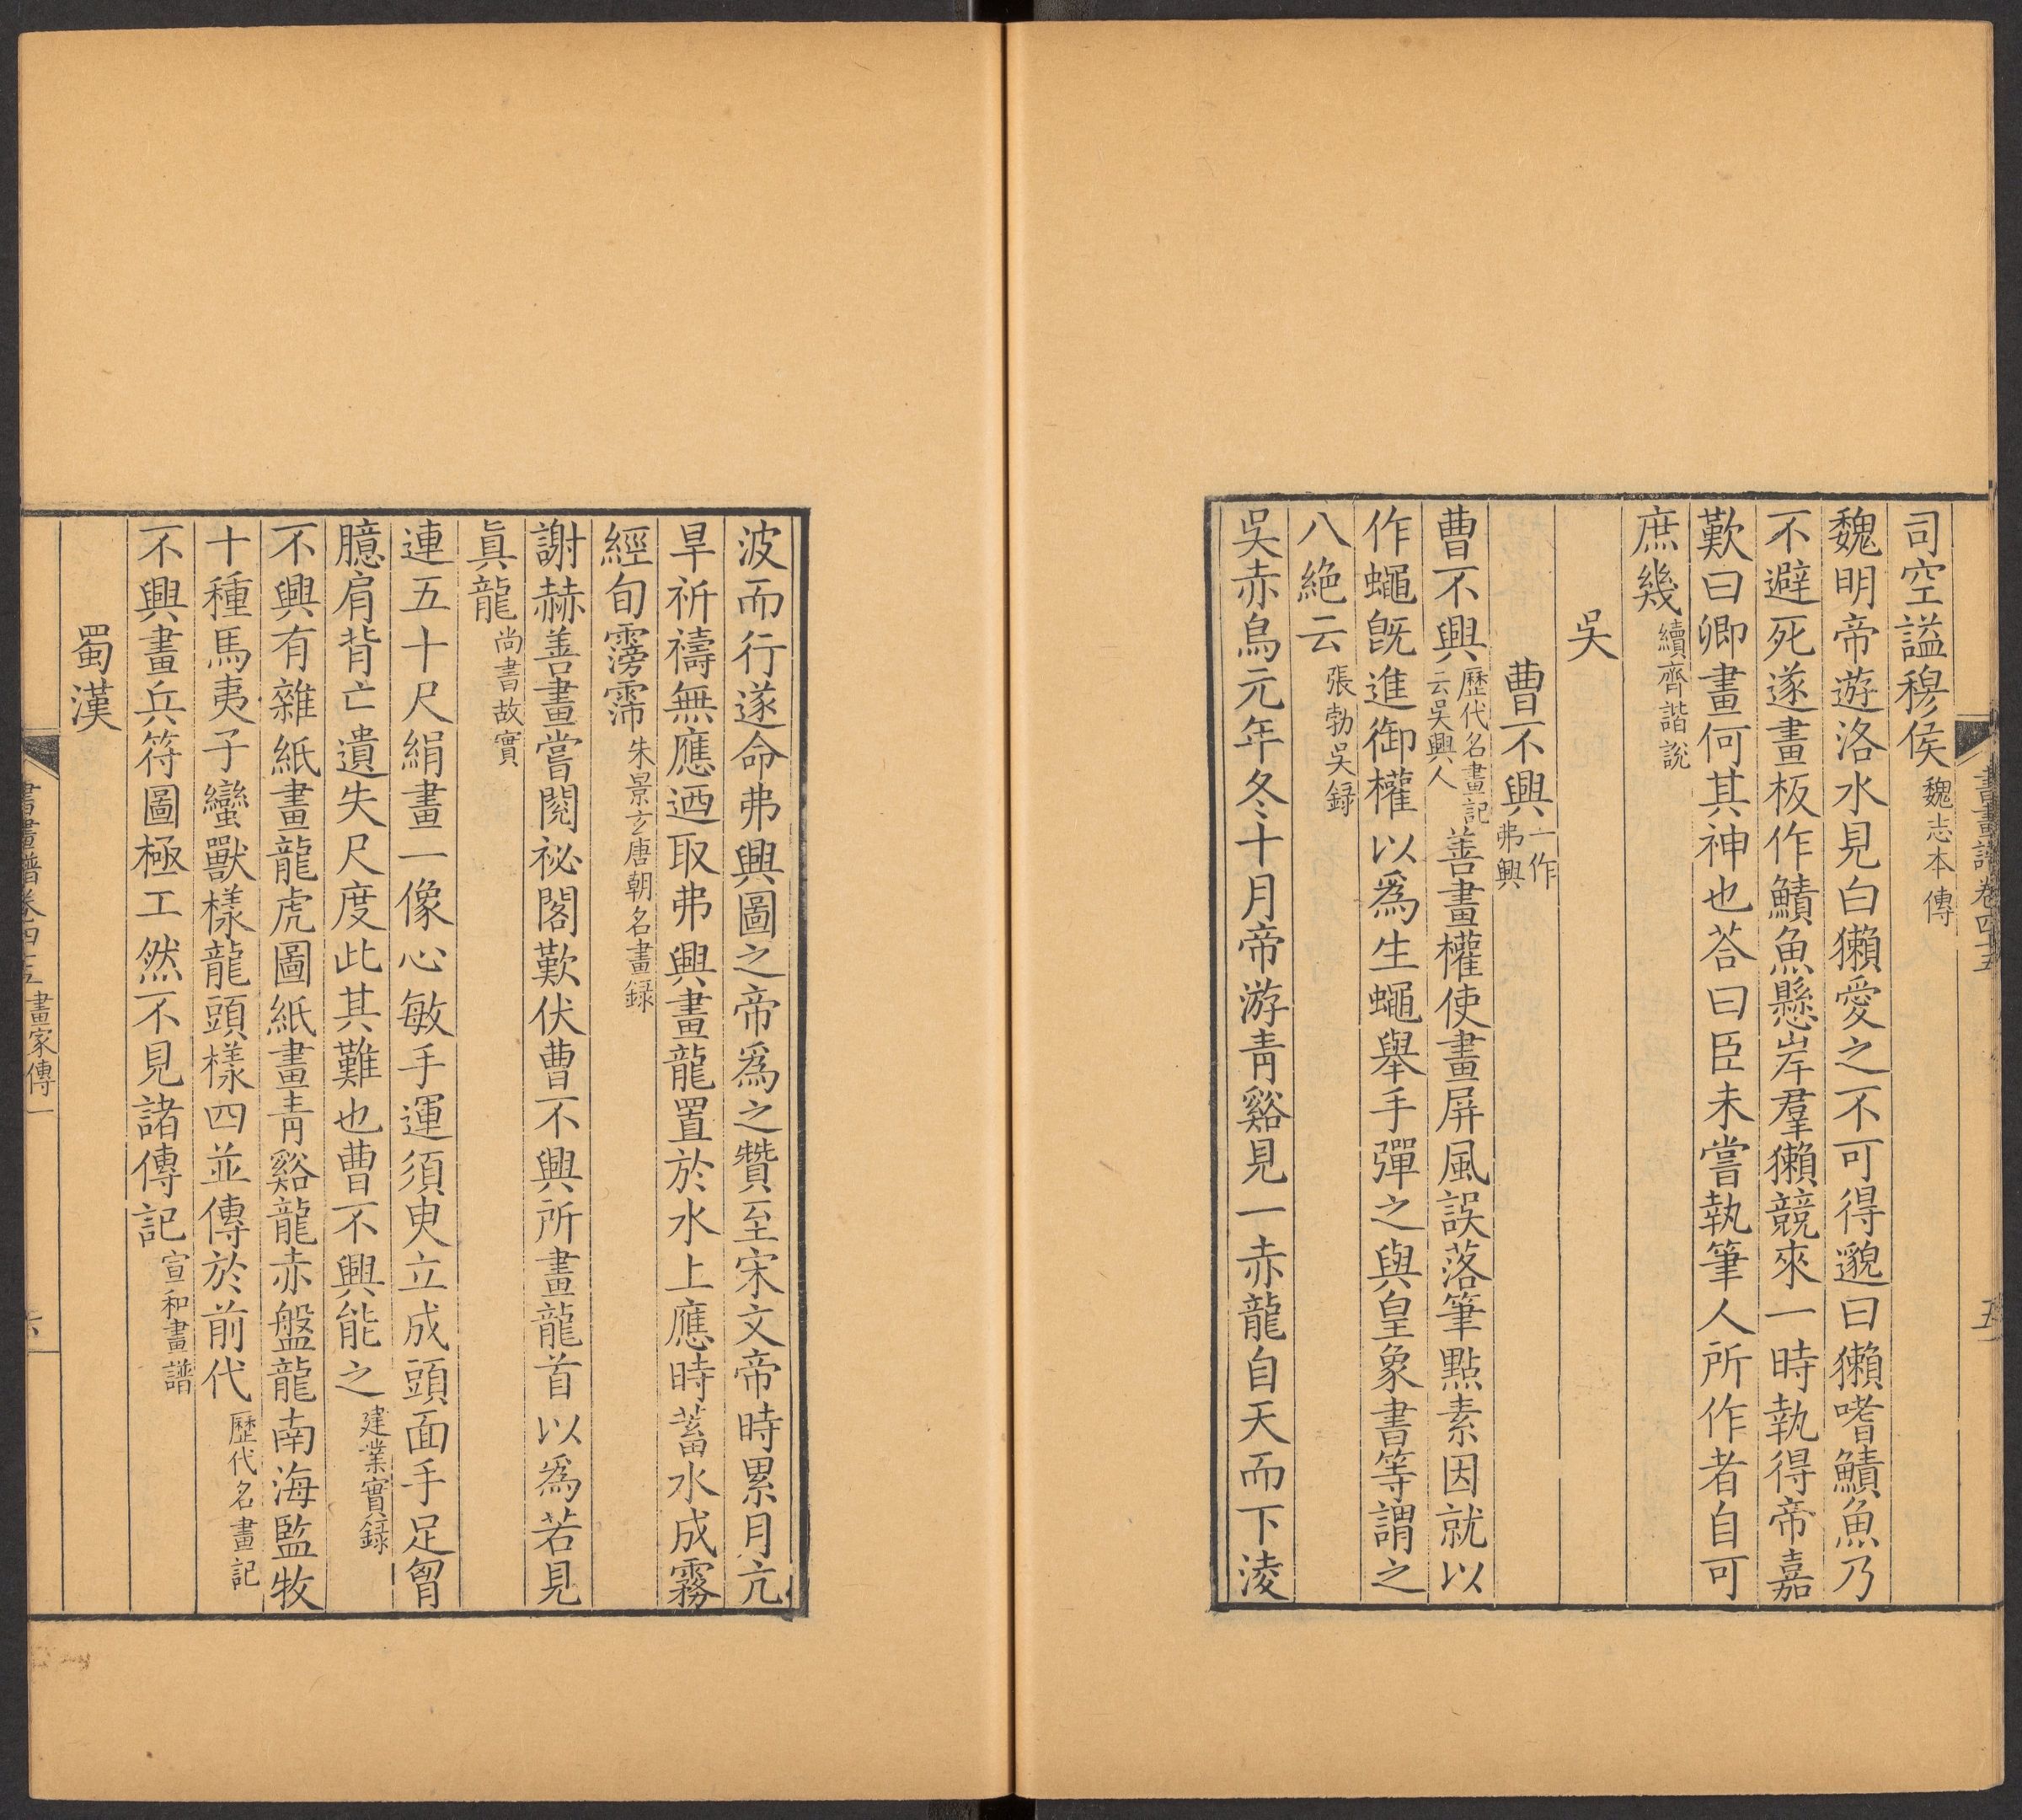 書畫譜卷四十五
五
司空謚穆侯魏志本傳
魏明帝遊洛水見白獺愛之不可得邈曰獺嗜鯖魚乃
不避死遂畫板作鯖魚懸岸羣獺競來一時執得帝嘉
歎曰卿畫何其神也荅曰臣未嘗執筆人所作者自可
庶幾續齊諧說
吳
曹不興一作弗興
曹不興歷代名畫記云吳興人善畫權使畫屏風誤落筆點素因就以
作蠅旣進御權以爲生蠅舉手彈之與皇象書等謂之
八絶云張勃吳録
吳赤烏元年冬十月帝游青谿見一赤龍自天而下淩
波而行遂命弗興圖之帝爲之贊至宋文帝時累月亢
旱祈禱無應迺取弗興畫龍置於水上應時蓄水成霧
經旬霶霈朱景玄唐朝名畫録
謝赫善畫嘗閱祕閣歎伏曹不興所畫龍首以爲若見
眞龍尚書故實
連五十尺絹畫一像心敏手運須臾立成頭面手足胷
臆肩背亡遺失尺度此其難也曹不興能之建業實録
不興有雜紙畫龍虎圖紙畫青谿龍赤盤龍南海監牧
十種馬夷子蠻獸樣龍頭樣四並傳於前代歷代名畫記
不興畫兵符圖極工然不見諸傳記宣和畫譜
蜀漢
書畫譜卷四十五 畫家傳一
六